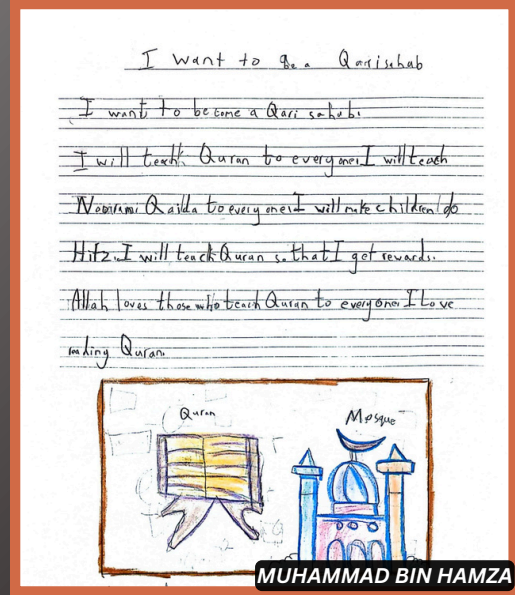 I want to Be a Qari sahab
I want to become a Qari sahab.
I will teach Quran to everyone. I will teach
Noorami Qaida to everyone. I will make children do
Hifz. I will teach Quran so that I get rewards.
Allah loves those who teach Quran to everyone. I Love
reading Quran.
Quran
Mosque
MUHAMMAD BIN HAMZA